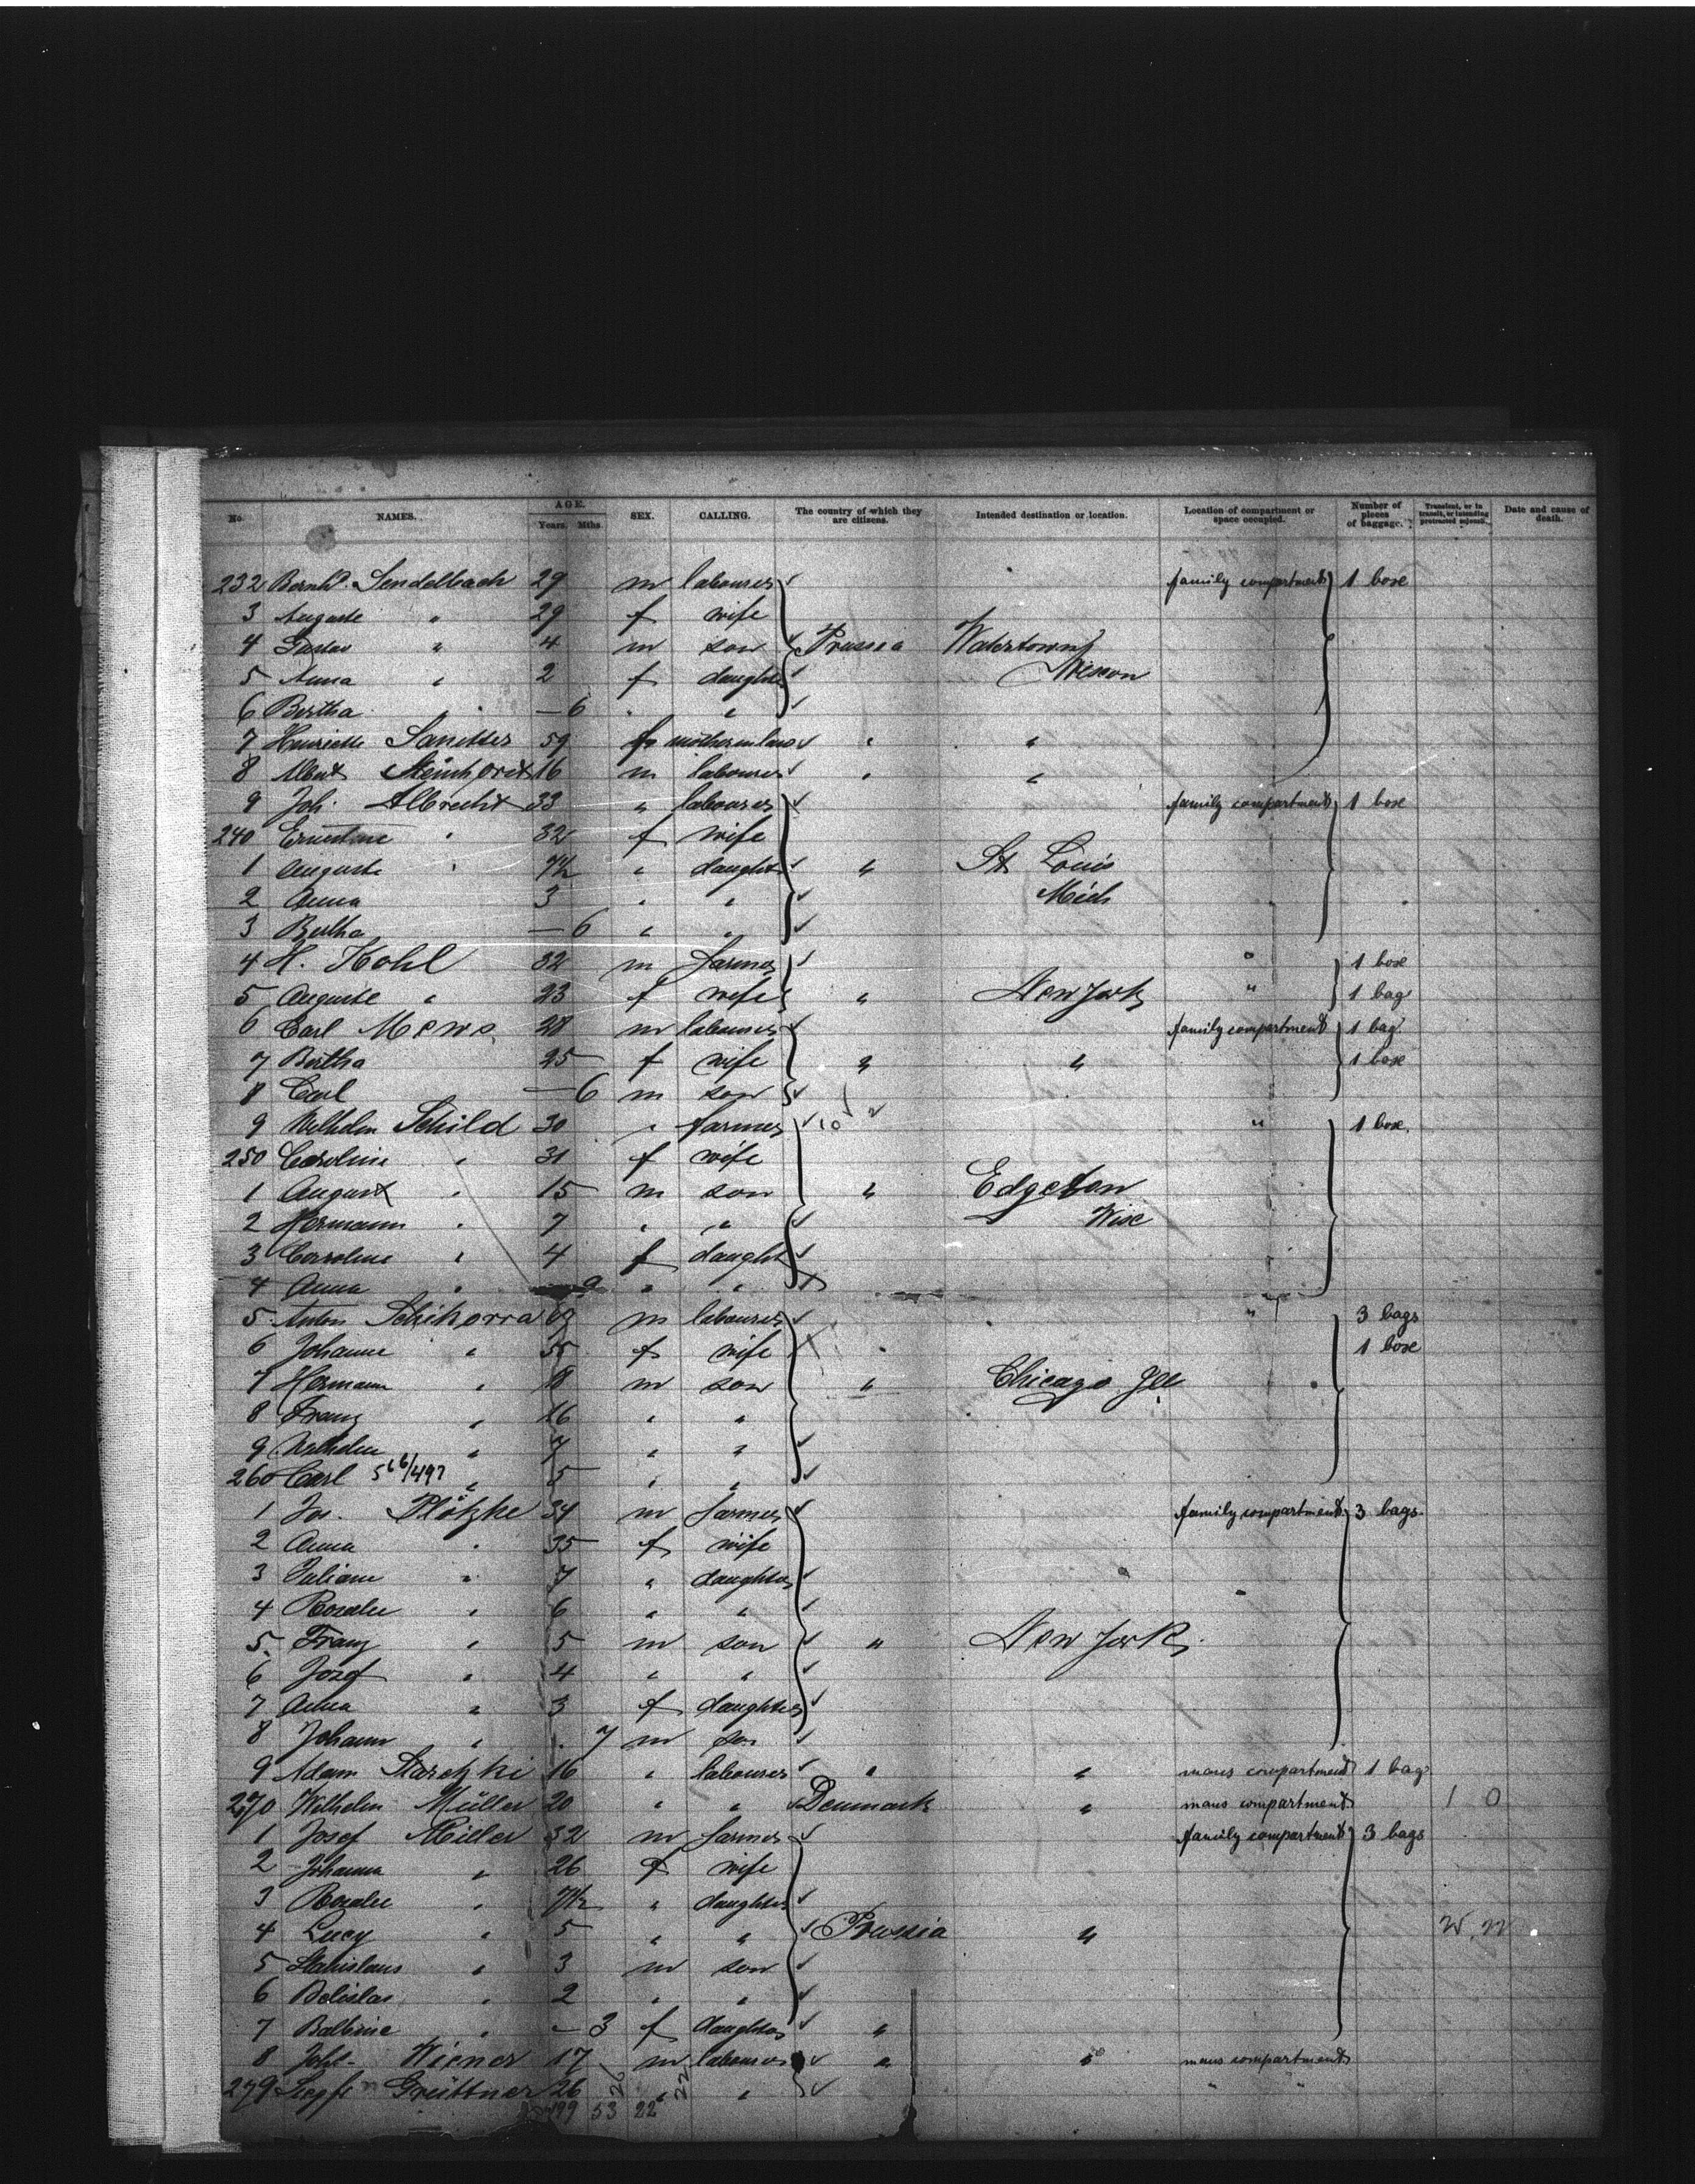 No. NAMES. AGE. Years. Mths. SEX. CALLING. The country of which they are citizens. Intended destination or location. Location of compartment or space occupied. Number of pieces of baggage. Transient, or in transit, or intending protracted sojourn. Date and cause of death.
232 Bernhd. Sendelbach 29 m labourer family compartment 1 boxe
3 Auguste " 29 f wife
4 Gustav " 4 m son Prussia Watertown
5 Anna " 2 f daughter Wiscon
6 Bertha " — 6 " "
7 Henriette 59 f mother in law " "
8 Albert 16 m labourer " "
9 Joh. Albrecht 33 " labourer family compartment 1 boxe
240 Ernestine " 32 f wife
1 Auguste " 7½ " daughter " St Louis
2 Anna 3 " " Mich
3 Bertha — 6 " "
4 H. Kohl 32 m farmer " 1 boxe
5 Auguste " 23 f wife " New York " 1 bag
6 Carl Mews 28 m labourer family compartment 1 bag
7 Bertha 25 f wife " " 1 boxe
8 Carl — 6 m son
9 Wilhelm Schild 30 " farmer 10 " 1 boxe
250 Caroline " 31 f wife
1 August " 15 m son " Edgeton
2 Hermann " 7 " " Wisc
3 Carroline " 4 f daught
4 Anna " 9 " "
5 Anton Schikorra m labourer " 3 bags
6 Johanne " 55 f wife " 1 boxe
7 Hermann " 18 m son " Chicago Ill
8 Franz " 16 " "
9 Wilhelm " 7 " "
260 Carl 566/497 " 5 " "
1 Jos. Plötzke 34 m farmer family compartment 3 bags
2 Anna " 35 f wife
3 Juliane " 7 " daughter
4 Rosalie " 6 " "
5 Franz " 5 m son " New York
6 Josef " 4 " "
7 Anna " 3 f daughter
8 Johann " 7 m son
9 Adam 16 " labourer " " mans compartment 1 bag
270 Wilhelm Müller 20 " " Denmark " mans compartment 1 0
1 Josef Miller 32 m farmer family compartment 3 bags
2 Johanna " 26 f wife
3 Rosalie " 7½ " daughter
4 Lucy " 5 " " Prussia "
5 Stanislaus " 3 m son
6 " 2 " "
7 Balbine " — 3 f daughter "
8 Joh. Wiener 17 m labourer " " mans compartment
279 Grüttner 26 " " " "
499 53 22